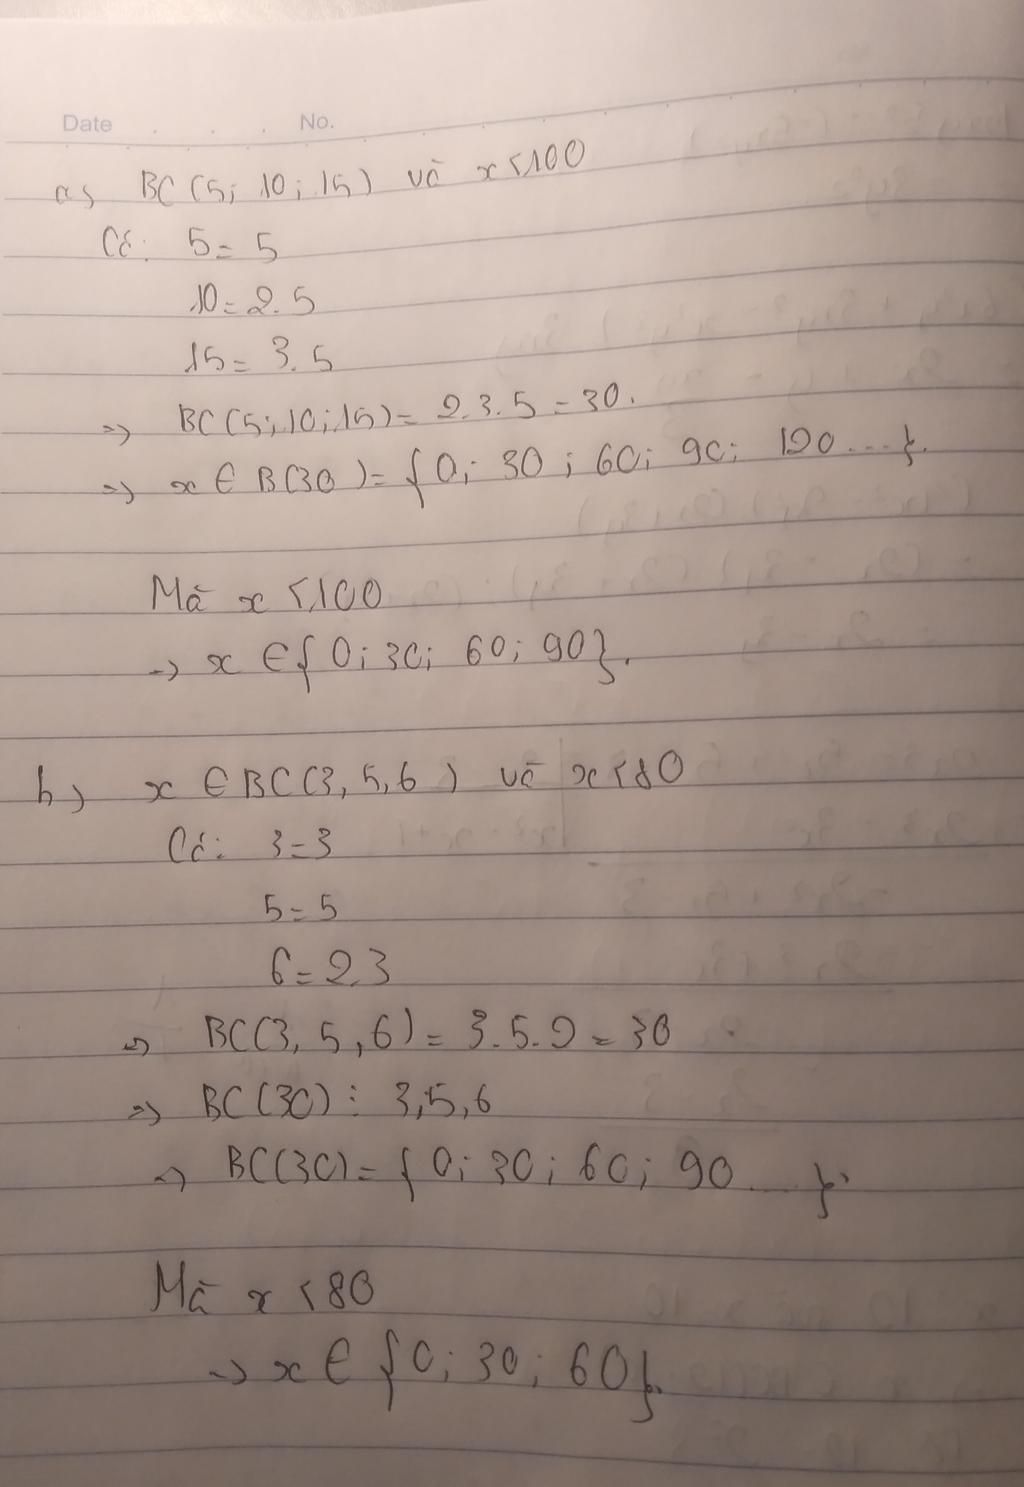 Date . . . No.
a) BC (5; 10; 15) và x < 100
Có: 5 = 5
10 = 2.5
15 = 3.5
=> BC (5; 10; 15) = 2.3.5 = 30.
=> x ∈ B(30) = { 0; 30; 60; 90; 120...}.
Mà x < 100
-> x ∈ { 0; 30; 60; 90}.
b) x ∈ BC (3, 5, 6) và x < 80
Có: 3 = 3
5 = 5
6 = 2.3
=> BC (3, 5, 6) = 3.5.2 = 30
=> BC (30) ⋮ 3, 5, 6
=> BC (30) = { 0; 30; 60; 90 .... }.
Mà x < 80
-> x ∈ { 0; 30; 60}.